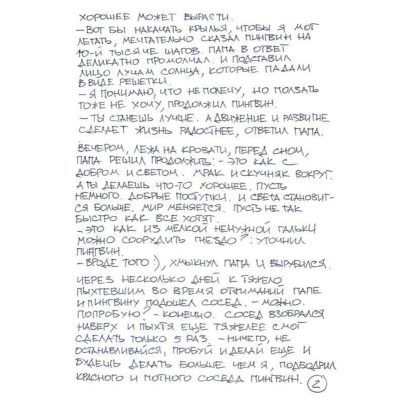 ХОРОШЕЕ МОЖЕТ ВЫРАСТИ.
– ВОТ БЫ НАКАЧАТЬ КРЫЛЬЯ, ЧТОБЫ Я МОГ
ЛЕТАТЬ, МЕЧТАТЕЛЬНО СКАЗАЛ ПИНГВИН НА
10-Й ТЫСЯЧЕ ШАГОВ. ПАПА В ОТВЕТ
ДЕЛИКАТНО ПРОМОЛЧАЛ. И ПОДСТАВИЛ
ЛИЦО ЛУЧАМ СОЛНЦА, КОТОРЫЕ ПАДАЛИ
В ВИДЕ РЕШЕТКИ.
– Я ПОНИМАЮ, ЧТО НЕ ПОЛЕЧУ, НО ПОЛЗАТЬ
ТОЖЕ НЕ ХОЧУ, ПРОДОЛЖИЛ ПИНГВИН.
– ТЫ СТАНЕШЬ ЛУЧШЕ. А ДВИЖЕНИЕ И РАЗВИТИЕ
СДЕЛАЕТ ЖИЗНЬ РАДОСТНЕЕ, ОТВЕТИЛ ПАПА.
ВЕЧЕРОМ, ЛЕЖА НА КРОВАТИ, ПЕРЕД СНОМ,
ПАПА РЕШИЛ ПРОДОЛЖИТЬ: – ЭТО КАК С
ДОБРОМ И СВЕТОМ. МРАК И СКУЧНЯК ВОКРУГ.
А ТЫ ДЕЛАЕШЬ ЧТО-ТО ХОРОШЕЕ. ПУСТЬ
НЕМНОГО. ДОБРЫЕ ПОСТУПКИ. И СВЕТА СТАНОВИТ-
СЯ БОЛЬШЕ. МИР МЕНЯЕТСЯ. ПУСТЬ НЕ ТАК
БЫСТРО КАК ВСЕ ХОТЯТ.
– ЭТО КАК ИЗ МЕЛКОЙ НЕНУЖНОЙ ГАЛЬКИ
МОЖНО СООРУДИТЬ ГНЕЗДО?: УТОЧНИЛ
ПИНГВИН.
– ВРОДЕ ТОГО :), ХМЫКНУЛ ПАПА И ВЫРУБИЛСЯ.
ЧЕРЕЗ НЕСКОЛЬКО ДНЕЙ К ТЯЖЕЛО
ПЫХТЕВШИМ ВО ВРЕМЯ ОТЖИМАНИЙ ПАПЕ
И ПИНГВИНУ ПОДОШЕЛ СОСЕД. – МОЖНО
ПОПРОБУЮ? – КОНЕЧНО. СОСЕД ВЗОБРАЛСЯ
НАВЕРХ И ПЫХТЯ ЕЩЕ ТЯЖЕЛЕЕ СМОГ
СДЕЛАТЬ ТОЛЬКО 5 РАЗ. – НИЧЕГО, НЕ
ОСТАНАВЛИВАЙСЯ, ПРОБУЙ И ДЕЛАЙ ЕЩЕ И
БУДЕШЬ ДЕЛАТЬ БОЛЬШЕ ЧЕМ Я, ПОДБОДРИЛ
КРАСНОГО И ПОТНОГО СОСЕДА ПИНГВИН. 2